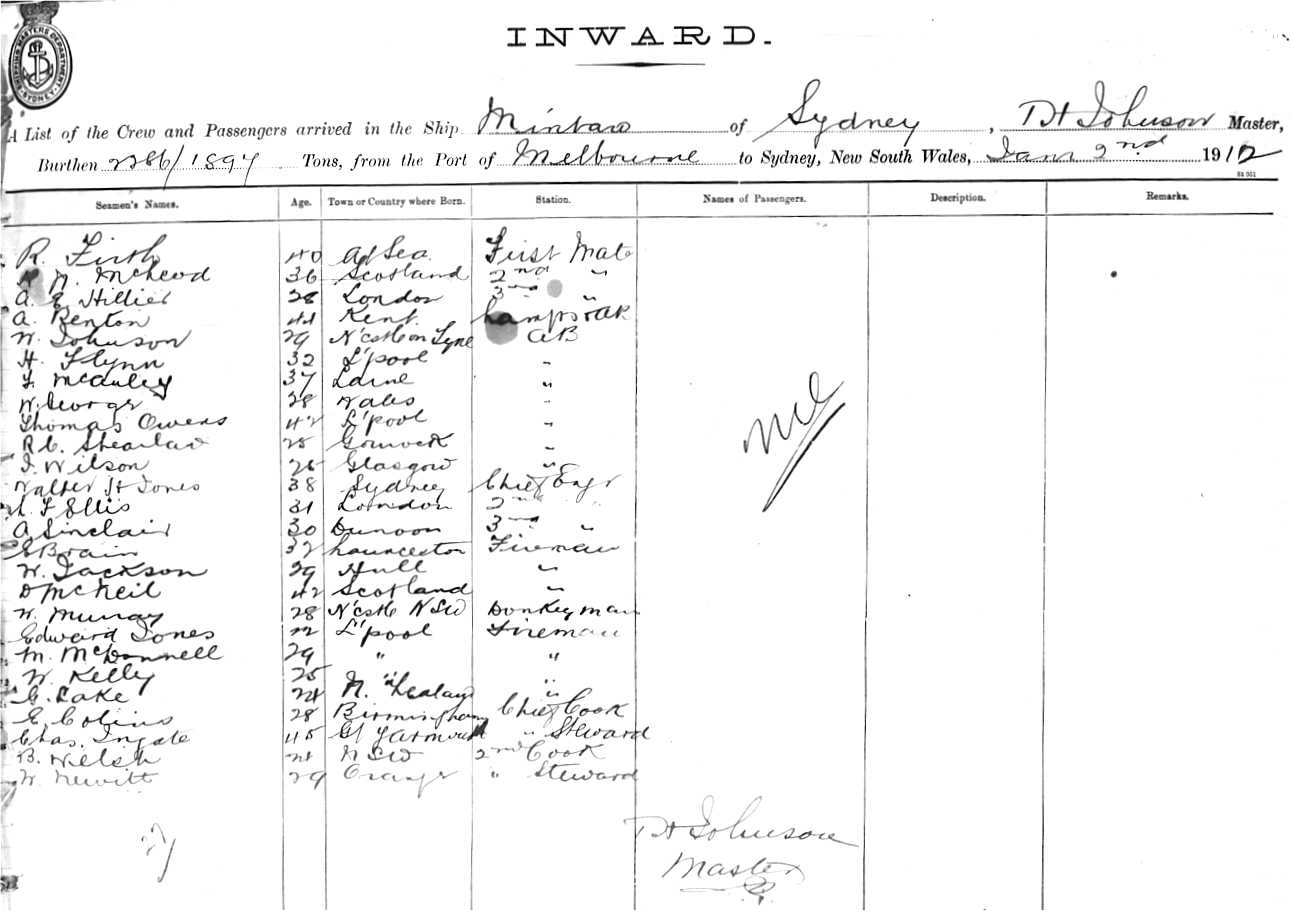 SHIPPING MASTERS DEPARTMENT SYDNEY
INWARD.
A List of the Crew and Passengers arrived in the Ship Mintaro of Sydney, T H Johnson Master,
Burthen 2286/1897 Tons, from the Port of Melbourne to Sydney, New South Wales, Jan 2nd 1912
Seamen's Names. Age. Town or Country where Born. Station. Names of Passengers. Description. Remarks.
R. Firth 40 At Sea First Mate
N. McLeod 36 Scotland 2nd "
A. E Hillier 28 London 3rd "
A. Renton 44 Kent Lamps
W. Johnson 29 N'cstle on Tyne AB
H. Flynn 32 L'pool "
F. McAuley 37 Larne "
W. George 28 Wales "
Thomas Owens 42 L'pool "
R C. Shearlaw 25 Gourock "
J. Wilson 26 Glasgow "
Walter H Jones 38 Sydney Chief Engr
F Ellis 31 London 2nd
A Sinclair 30 Dunoon 3rd "
E Brain 32 Launceston Fireman
W. Jackson 29 Hull "
D McNeil 42 Scotland "
W. Murray 28 N'cstle NSW Donkeyman
Edward Jones 22 L'pool Fireman
M. McDonnell 29 " "
W. Kelly 25 " "
G. Lake 24 N. Zealand "
E. Colins 28 Birmingham Chief Cook
Chas. Ingate 45 Gt Yarmouth " Steward
B. Welsh 21 NSW 2nd Cook
W. Newitt 29 Orange " Steward
Nil
T H Johnson
Master